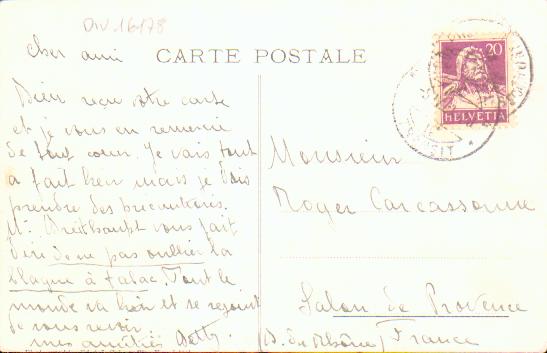 DIV 16178
cher ami
CARTE POSTALE
Bien reçu votre carte
et je vous en remercie
de tout cœur. Je vais tout
a fait bien mais je dois
prendre des précautions.
Mr Breithaupt vous fait
dire de ne pas oublier la
blague à tabac. Tout le
monde va bien et se rejouit
de vous revoir.
mes amitiés
20
HELVETIA
Monsieur
Roger Carcassonne
Salon de Provence
B. du Rhône, France